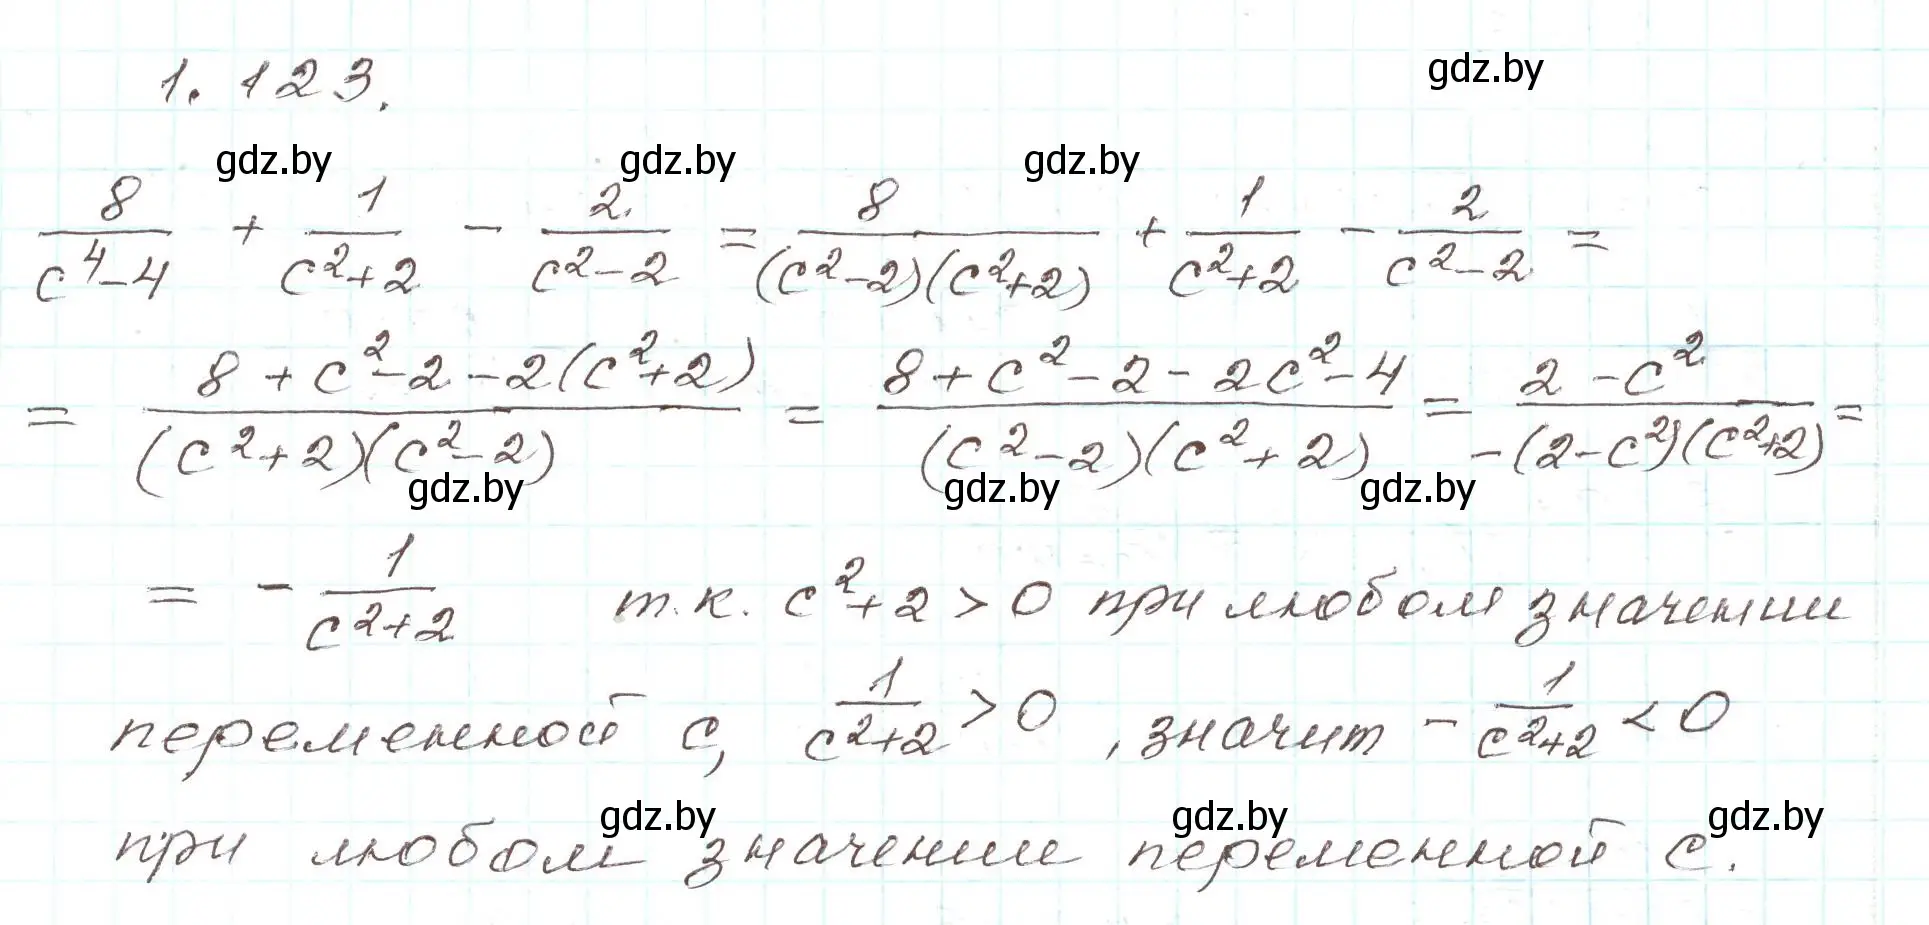 1.123.
gdz.by
gdz.by gdz.by gdz.by
8/(c⁴-4) + 1/(c²+2) - 2/(c²-2) = 8/((c²-2)(c²+2)) + 1/(c²+2) - 2/(c²-2) =
= (8+c²-2-2(c²+2))/((c²+2)(c²-2)) = (8+c²-2-2c²-4)/((c²-2)(c²+2)) = (2-c²)/(-(2-c²)(c²+2)) =
gdz.by gdz.by gdz.by
= - 1/(c²+2) т.к. c²+2>0 при любом значении
переменной c, 1/(c²+2) >0, значит - 1/(c²+2) <0
gdz.by gdz.by gdz.by
при любом значении переменной c.